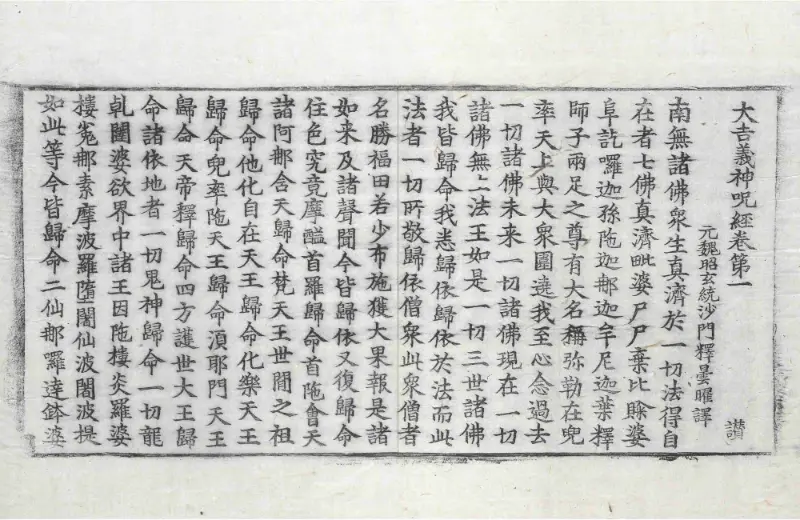 大吉義神呪經卷第一　讃
元魏昭玄統沙門釋曇曜譯
南無諸佛衆生真濟於一切法得自
在者七佛真濟毗婆尸尸棄比賒婆
阜訖囉迦孫陁迦那迦牟尼迦葉釋
師子兩足之尊有大名稱弥勒在兜
率天上與大衆圍遶我至心念過去
一切諸佛未来一切諸佛現在一切
諸佛無二法王如是一切三世諸佛
我皆歸命我悉歸依歸依於法而此
法者一切所敬歸依僧衆此衆僧者
名勝福田若少布施獲大果報是諸
如来及諸聲聞今皆歸依又復歸命
住色究竟摩醯首羅歸命首陁會天
諸阿那含天歸命梵天王世間之祖
歸命他化自在天王歸命化樂天王
歸命兜率陁天王歸命湏耶門天王
歸命天帝釋歸命四方護世大王歸
命諸依地者一切鬼神歸命一切龍
乹闥婆欲界中諸王因陁樓炎羅婆
樓寃那素摩波羅墮闍仙波闍波提
如此等今皆歸命二仙那羅達鉢婆